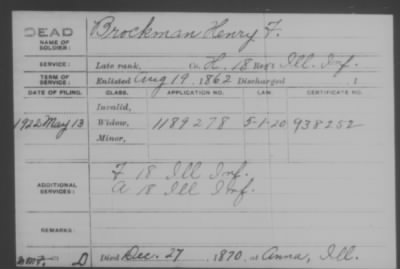 DEAD
NAME OF SOLDIER:
Brockman Henry F.
SERVICE: Late rank, Co. H, 18 Reg't Ill. Inf.
TERM OF SERVICE: Enlisted Aug 19, 1862 Discharged , 1
DATE OF FILING. CLASS. APPLICATION NO. LAW. CERTIFICATE NO.
Invalid,
1922 May 13 Widow, 1189278 5-1-20 938252
Minor,
ADDITIONAL SERVICES:
F 18 Ill Inf.
A 18 Ill Inf.
REMARKS:
D Died Dec. 27, 1870, at Anna, Ill.